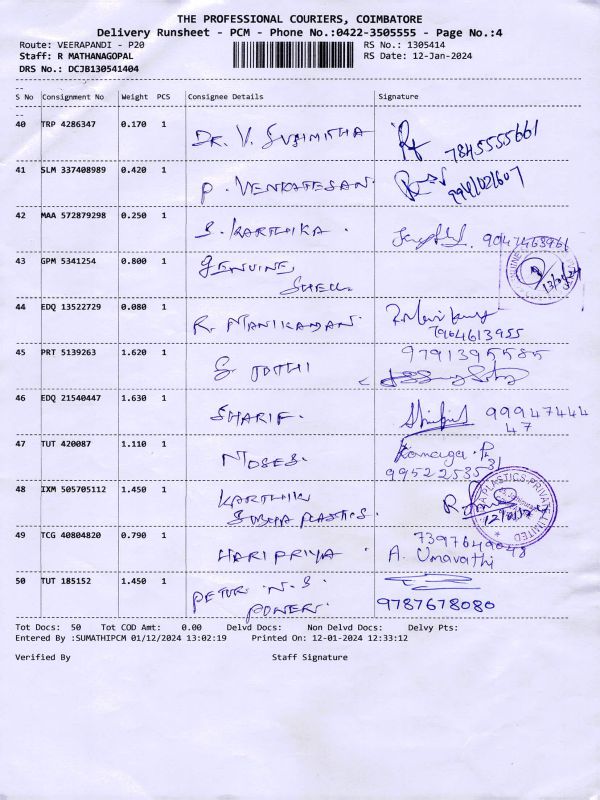 THE PROFESSIONAL COURIERS, COIMBATORE
Delivery Runsheet - PCM - Phone No.:0422-3505555 - Page No.:4
Route: VEERAPANDI - P20 RS No.: 1305414
Staff: R MATHANAGOPAL RS Date: 12-Jan-2024
DRS No.: DCJB130541404
S No Consignment No Weight PCS Consignee Details Signature
40 TRP 4286347 0.170 1 DR. V. SUSIMITHA 7845555661
41 SLM 337408989 0.420 1 P. VENKATESAN.
42 MAA 572879298 0.250 1 S. KARTHIKA. 9047468966
43 GPM 5341254 0.800 1 GENUINE
SHELL
44 EDQ 13522729 0.080 1 R. MANIKANDAN.
7904613955
45 PRT 5139263 1.620 1 S JOTHI 9791395585
46 EDQ 21540447 1.630 1 SHARIF. 99947444
47
47 TUT 420087 1.110 1 MOSES.
9952253531
48 IXM 505705112 1.450 1 KARTHIK
SUBHA PLASTICS.
PLASTICS PRIVATE LIMITED
12/01/24
49 TCG 40804820 0.790 1 HARI PRIYA 7397649048
A. Umavathi
50 TUT 185152 1.450 1 PETER N.S.
POWER. 9787678080
Tot Docs: 50 Tot COD Amt: 0.00 Delvd Docs: Non Delvd Docs: Delvy Pts:
Entered By :SUMATHIPCM 01/12/2024 13:02:19 Printed On: 12-01-2024 12:33:12
Verified By Staff Signature